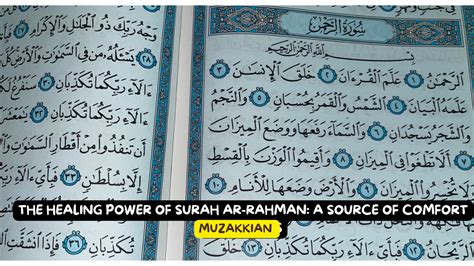 سُورَةُ الرَّحْمَٰن
بِسْمِ اللَّهِ الرَّحْمَٰنِ الرَّحِيمِ
الرَّحْمَٰنُ ١ عَلَّمَ الْقُرْءَانَ ٢ خَلَقَ الْإِنسَٰنَ ٣
عَلَّمَهُ الْبَيَانَ ٤ الشَّمْسُ وَالْقَمَرُ بِحُسْبَانٍ ٥ وَالنَّجْمُ
وَالشَّجَرُ يَسْجُدَانِ ٦ وَالسَّمَاءَ رَفَعَهَا وَوَضَعَ الْمِيزَانَ ٧
أَلَّا تَطْغَوْا فِي الْمِيزَانِ ٨ وَأَقِيمُوا الْوَزْنَ بِالْقِسْطِ
وَلَا تُخْسِرُوا الْمِيزَانَ ٩ وَالْأَرْضَ وَضَعَهَا لِلْأَنَامِ ١٠
وَجْهُ رَبِّكَ ذُو
٢٨ يَسْـَٔلُهُ مَن فِي السَّمَٰوَٰتِ
ءَالَاءِ رَبِّكُمَا تُكَذِّبَانِ ٣٠
ءَالَاءِ رَبِّكُمَا تُكَذِّبَانِ ٣٢
أَن تَنفُذُوا مِنْ أَقْطَارِ السَّمَٰوَٰتِ
إِلَّا بِسُلْطَٰنٍ ٣٣ فَبِأَيِّ
تُكَذِّبَانِ ٣٦ فَإِذَا انشَقَّتِ
THE HEALING POWER OF SURAH AR-RAHMAN: A SOURCE OF COMFORT
MUZAKKIAN